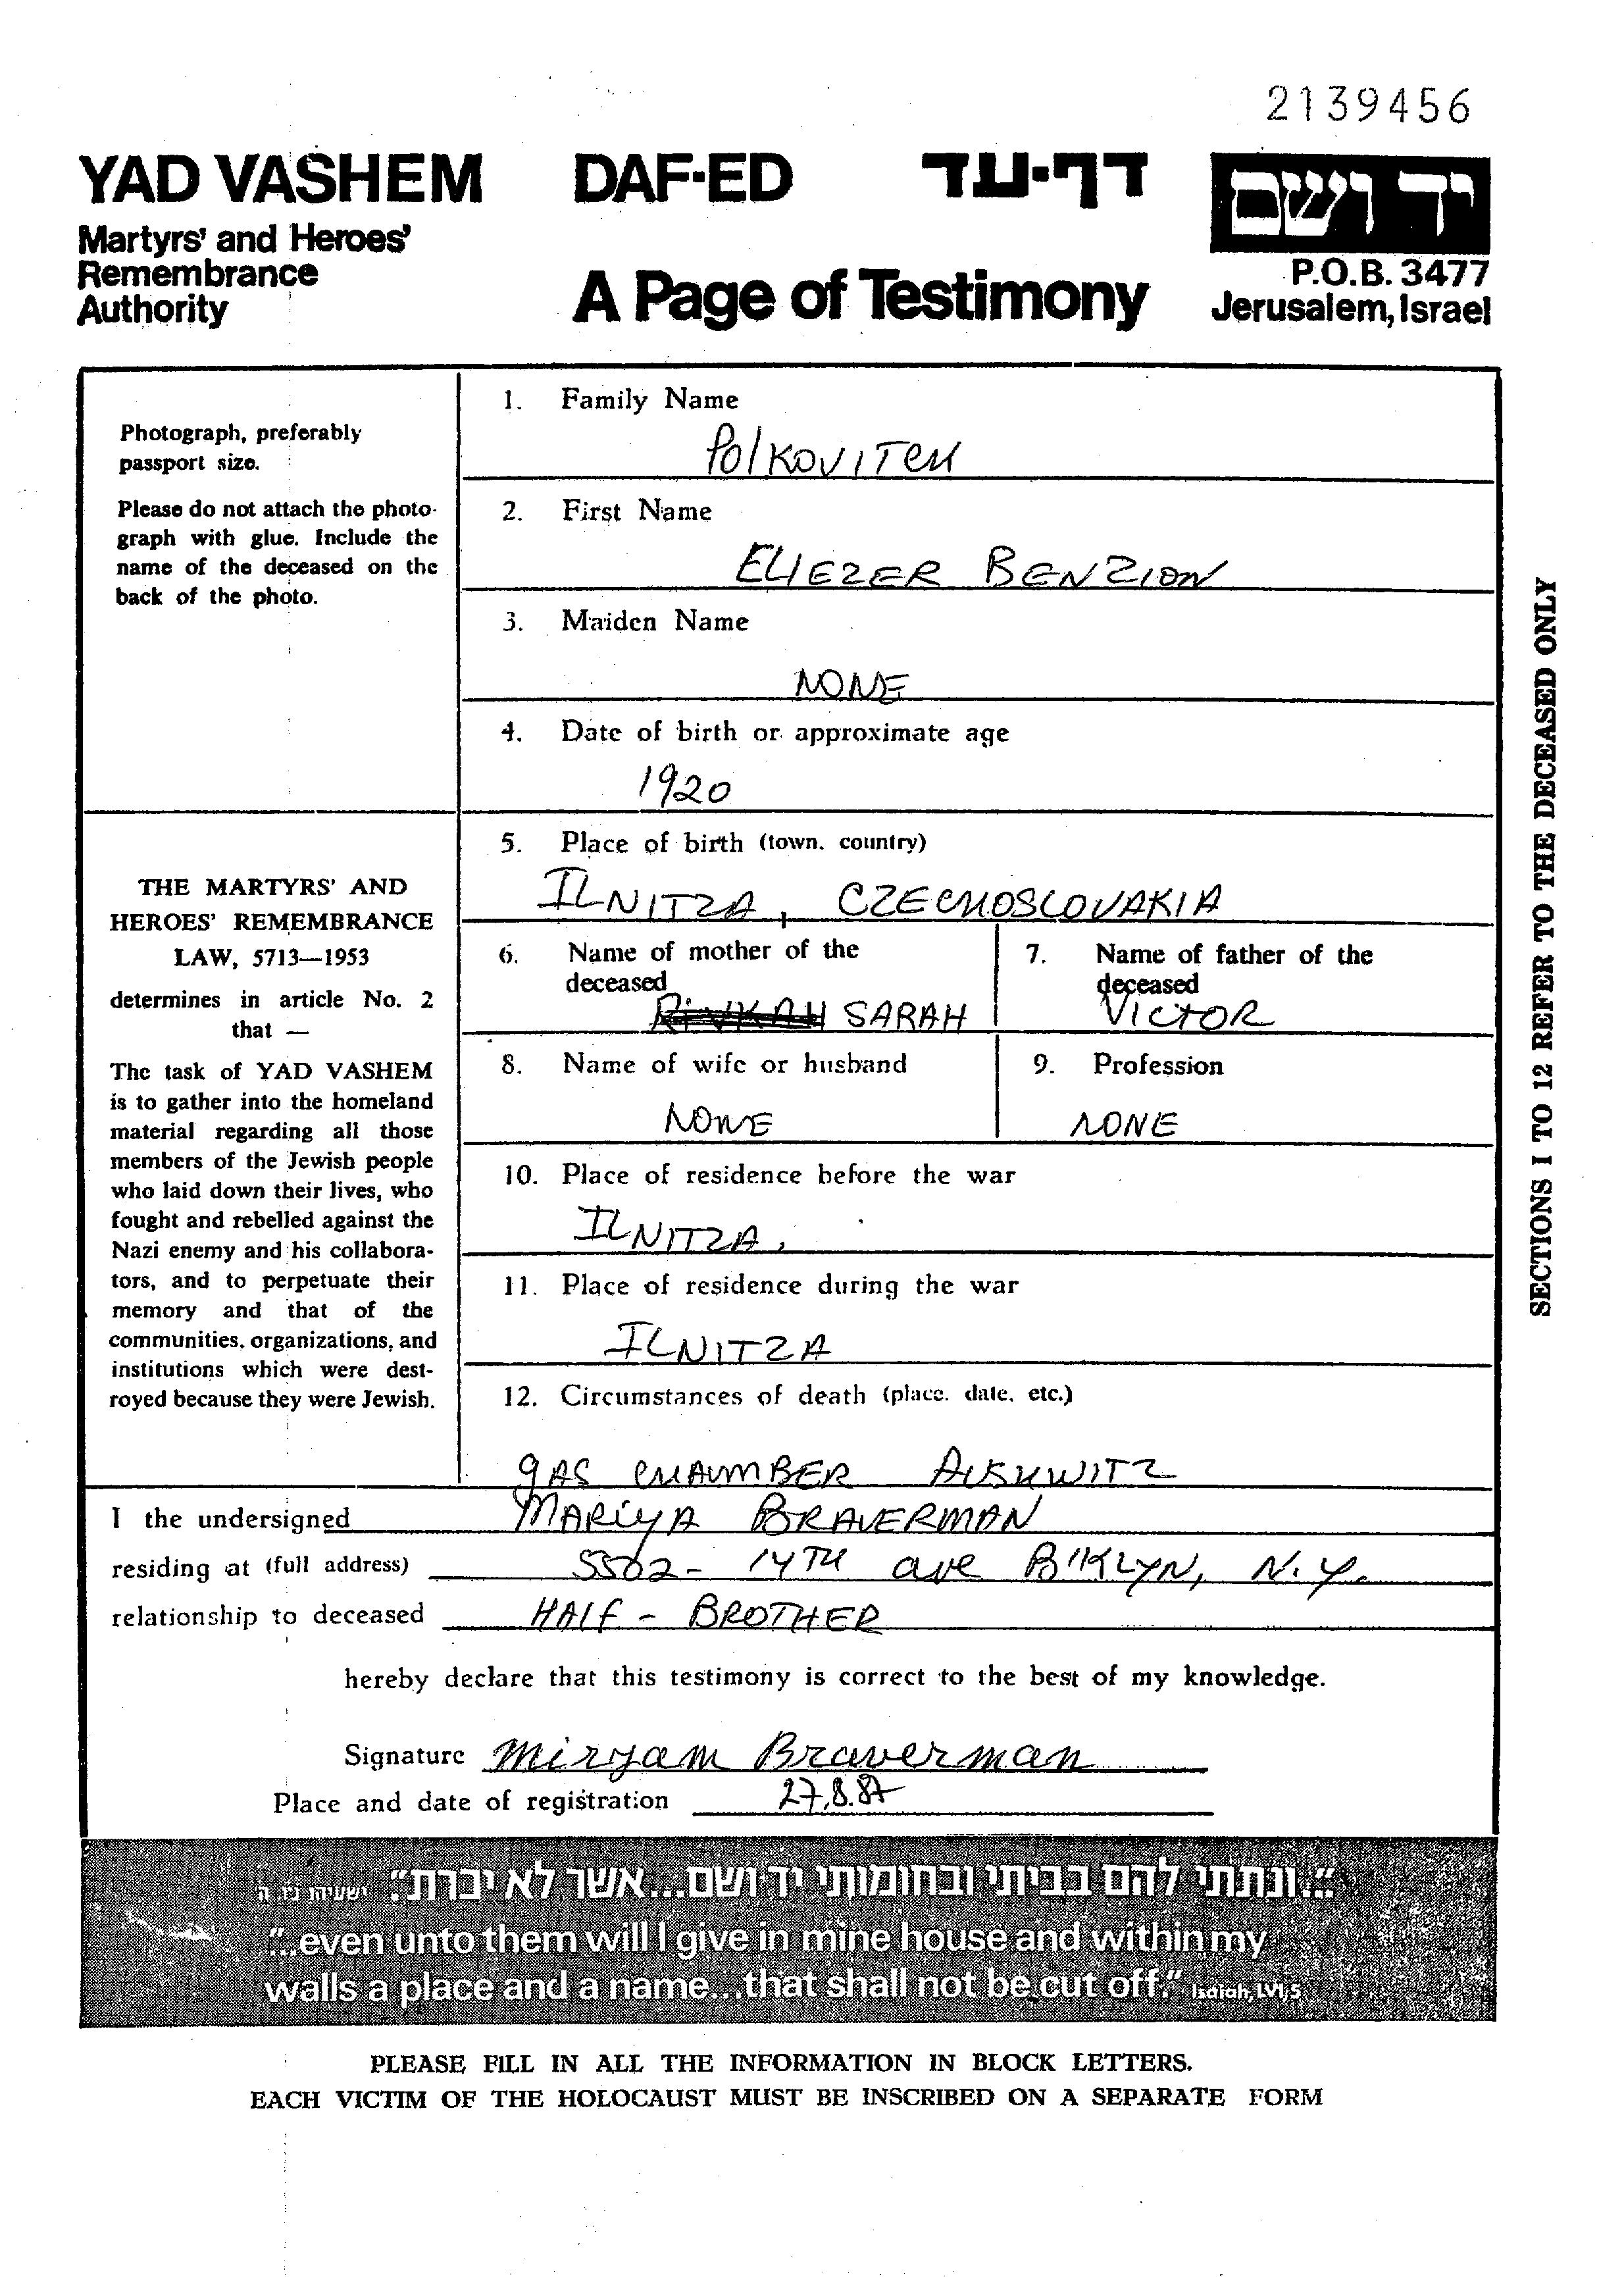 2139456
YAD VASHEM DAF-ED דף-עד יד ושם
Martyrs' and Heroes'
Remembrance
Authority
A Page of Testimony
P.O.B. 3477
Jerusalem, Israel
Photograph, preferably
passport size.
Please do not attach the photo-
graph with glue. Include the
name of the deceased on the
back of the photo.
THE MARTYRS' AND
HEROES' REMEMBRANCE
LAW, 5713—1953
determines in article No. 2
that —
The task of YAD VASHEM
is to gather into the homeland
material regarding all those
members of the Jewish people
who laid down their lives, who
fought and rebelled against the
Nazi enemy and his collabora-
tors, and to perpetuate their
memory and that of the
communities, organizations, and
institutions which were dest-
royed because they were Jewish.
1. Family Name
POlKOVITCH
2. First Name
ELIEZER BENZION
3. Maiden Name
NONE
4. Date of birth or approximate age
1920
5. Place of birth (town, country)
ILNITZA, CZECHOSLOVAKIA
6. Name of mother of the
deceased
RIVKAH SARAH
7. Name of father of the
deceased
VICTOR
8. Name of wife or husband
NONE
9. Profession
NONE
10. Place of residence before the war
ILNITZA,
11. Place of residence during the war
ILNITZA
12. Circumstances of death (place, date, etc.)
gAS CHAUMBER AUSHWITZ
I the undersigned MARiyA BRAVERMAN
residing at (full address) 5502- 14TH ave B'KLYN, N.Y.
relationship to deceased HAlf - BROTHER
hereby declare that this testimony is correct to the best of my knowledge.
Signature Miryam Braverman
Place and date of registration 27.8.87
SECTIONS 1 TO 12 REFER TO THE DECEASED ONLY
"...ונתתי להם בביתי ובחומותי יד ושם...אשר לא יכרת". ישעיהו נו, ה
"...even unto them will I give in mine house and within my
walls a place and a name...that shall not be cut off." Isaiah, LVI,5
PLEASE FILL IN ALL THE INFORMATION IN BLOCK LETTERS.
EACH VICTIM OF THE HOLOCAUST MUST BE INSCRIBED ON A SEPARATE FORM